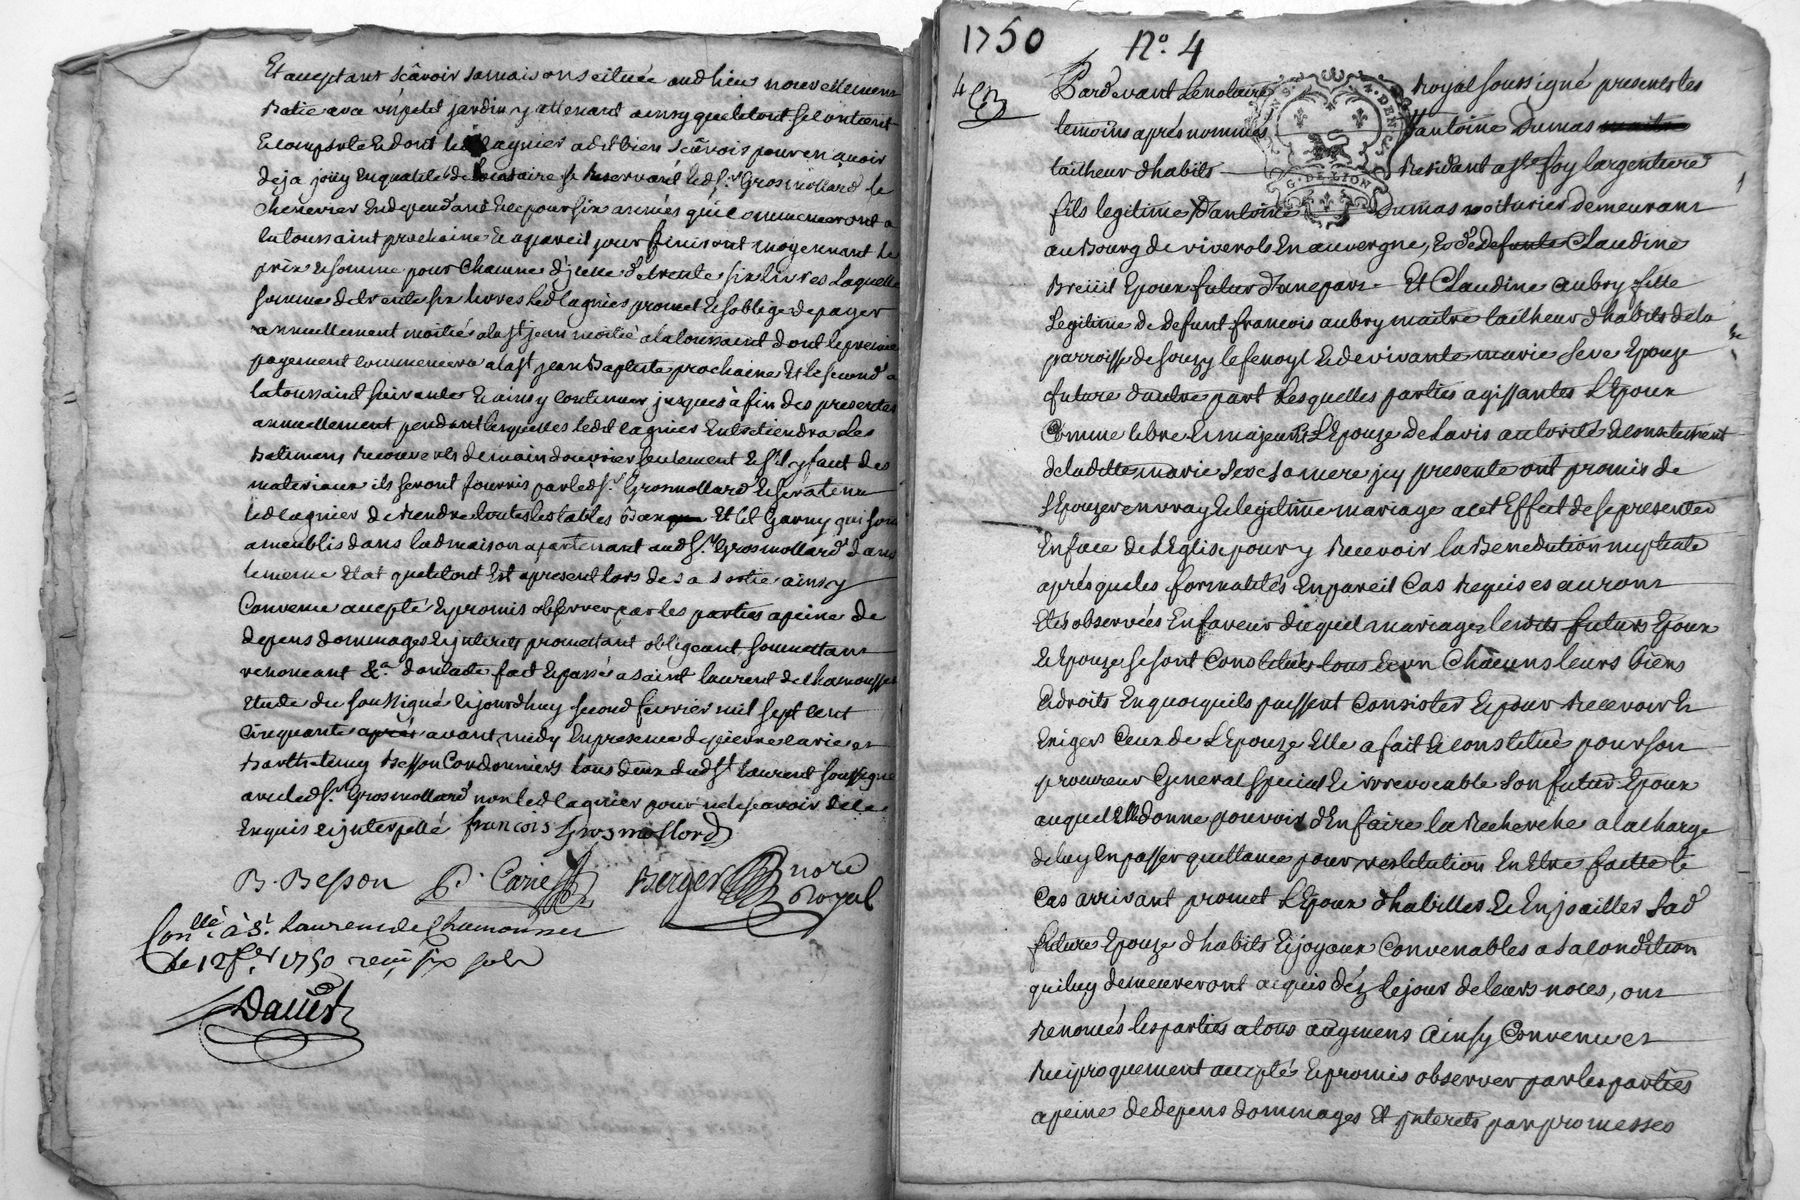 Et acceptant scavoir sa maison scituée aud lieu nouvellement
Batie avec un petit jardin y attenant ainsy que le tout se contient
Et comporte Et dont led lagnier a dit bien scavoir pour en avoir
deja jouy En qualité de locataire se Reservant led Sr. Grosmollard le
chenevier En dependant Et ce pour six années qui Commenceront a
la toussaint prochaine Et a pareil jour finiront moyennant le
prix Et somme pour chacune d'jcelle de trente six livres laquelle
somme de trente six livres led lagnier promet Et s'oblige de payer
annuellement moitié a la st jean moitié a la toussaint dont le premier
payement commencera a la st jean Baptiste prochaine Et le second a
la toussaint suivante Et ainsy continuer jusques à fin des presentes
annuellement pendant lesquelles ledit lagnier Entretiendra les
Batimens Recouverts de main d'ouvrier seulement Et s'il y faut des
materiaux ils seront fournis par led Sr. Grosmollard Et sera tenu
led lagnier de Rendre toutes les tables Et lit Garny qui sont
ameublis dans lad maison apartenant aud Sr. Grosmollard dans
le meme Etat que le tout Est apresent lors de sa sortie ainsy
Convenu accepté Et promis observer par les parties a peine de
depens dommages Et jnterets promettant obligeant soumettant
renonceant &a. dont acte fait Et passé a saint laurent de chamousset
Etude du soussigné cejourd'huy second fevrier mil sept cent
Cinquante après avant midy En presence de pierre carie et
Barthelemy Besson Cordonniers tous deux dud st laurent soussigné
avec led Sr. Grosmollard non led lagnier pour ne le scavoir de ce
Enquis Et jnterpellé françois Grosmollard
B. Besson P. Carie Berger nore
Royal
Conllé à St. Laurent de Chamousset
le 12 fer 1750 reçu six sols
Daviet
1750 No. 4
Pardevant Le notaire Royal soussigné presents les
temoins après nommés antoine Dumas
tailheur d'habits Residant a ste foy largentiere
fils legitime d'antoine Dumas voiturier demeurant
au Bourg de viverols En auvergne, Et de defunte Claudine
Breüil Epoux futur d'une part Et Claudine aubry fille
Legitime de defunt françois aubry maitre tailheur d'habits de la
parroisse de souzy le Et de vivante marie seve Epouze
future d'autre part Lesquelles parties agissantes L'Epoux
Comme libre Et majeur Et L'Epouze de L'avis autorité Et consentement
de laditte marie seve sa mere jcy presente ont promis de
s'Epouzer en vray Et legitime mariage a cet Effect de se presenter
En face de L'Eglise pour y Recevoir la Benediction nuptiale
après que les formalités En pareil Cas Requises auront
Etés observées En faveur duquel mariage lesdits futurs Epoux
Et Epouze se sont Constitués tous Et un Chacuns leurs biens
Et droits En quoi qu'ils puissent Consister Et pour Recevoir Et
Exiger Ceux de L'Epouze Elle a fait Et constitué pour son
procureur General special Et irrevocable son futur Epoux
auquel Elle donne pouvoir d'En faire la Recherche a la charge
de luy En passer quittance pour restitution En Etre faitte le
Cas arrivant promet L'Epoux d'habiller Et Enjoailler sad
future Epouze d'habits Et joyaux Convenables a sa condition
qui luy demeureront acquis dèz le jour de leurs noces, ont
Renoncés les parties a tous augmens Ainsy Convenu et
Reciproquement accepté Et promis observer par les parties
a peine de depens dommages Et jnterets par promesses
G. DE LION